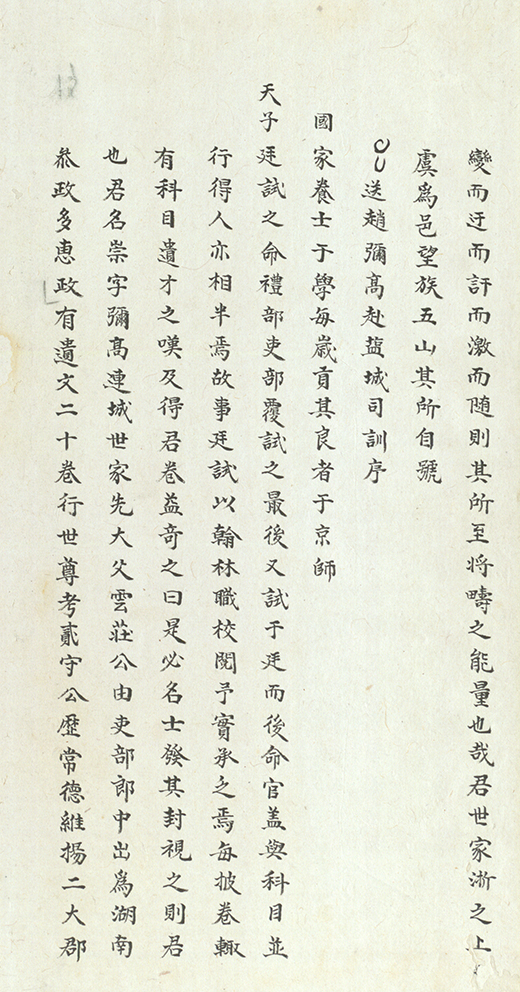 變而迂而訐而激而随則其所至将疇之能量也哉君世家淅之上
虞爲邑望族五山其所自號
送趙彌髙赴塩城司訓序
國家養士于學每歲貢其良者于京師
天子廷試之命禮部吏部覆試之最後又試于廷而後命官盖與科目並
行得人亦相半焉故事廷試以翰林職校閱予實承之焉每披卷輙
有科目遺才之嘆及得君卷益竒之曰是必名士發其封視之則君
也君名崇字彌髙連城世家先大父雲莊公由吏部郎中出爲湖南
叅政多惠政有遺文二十卷行世尊考貳守公歷常德維揚二大郡